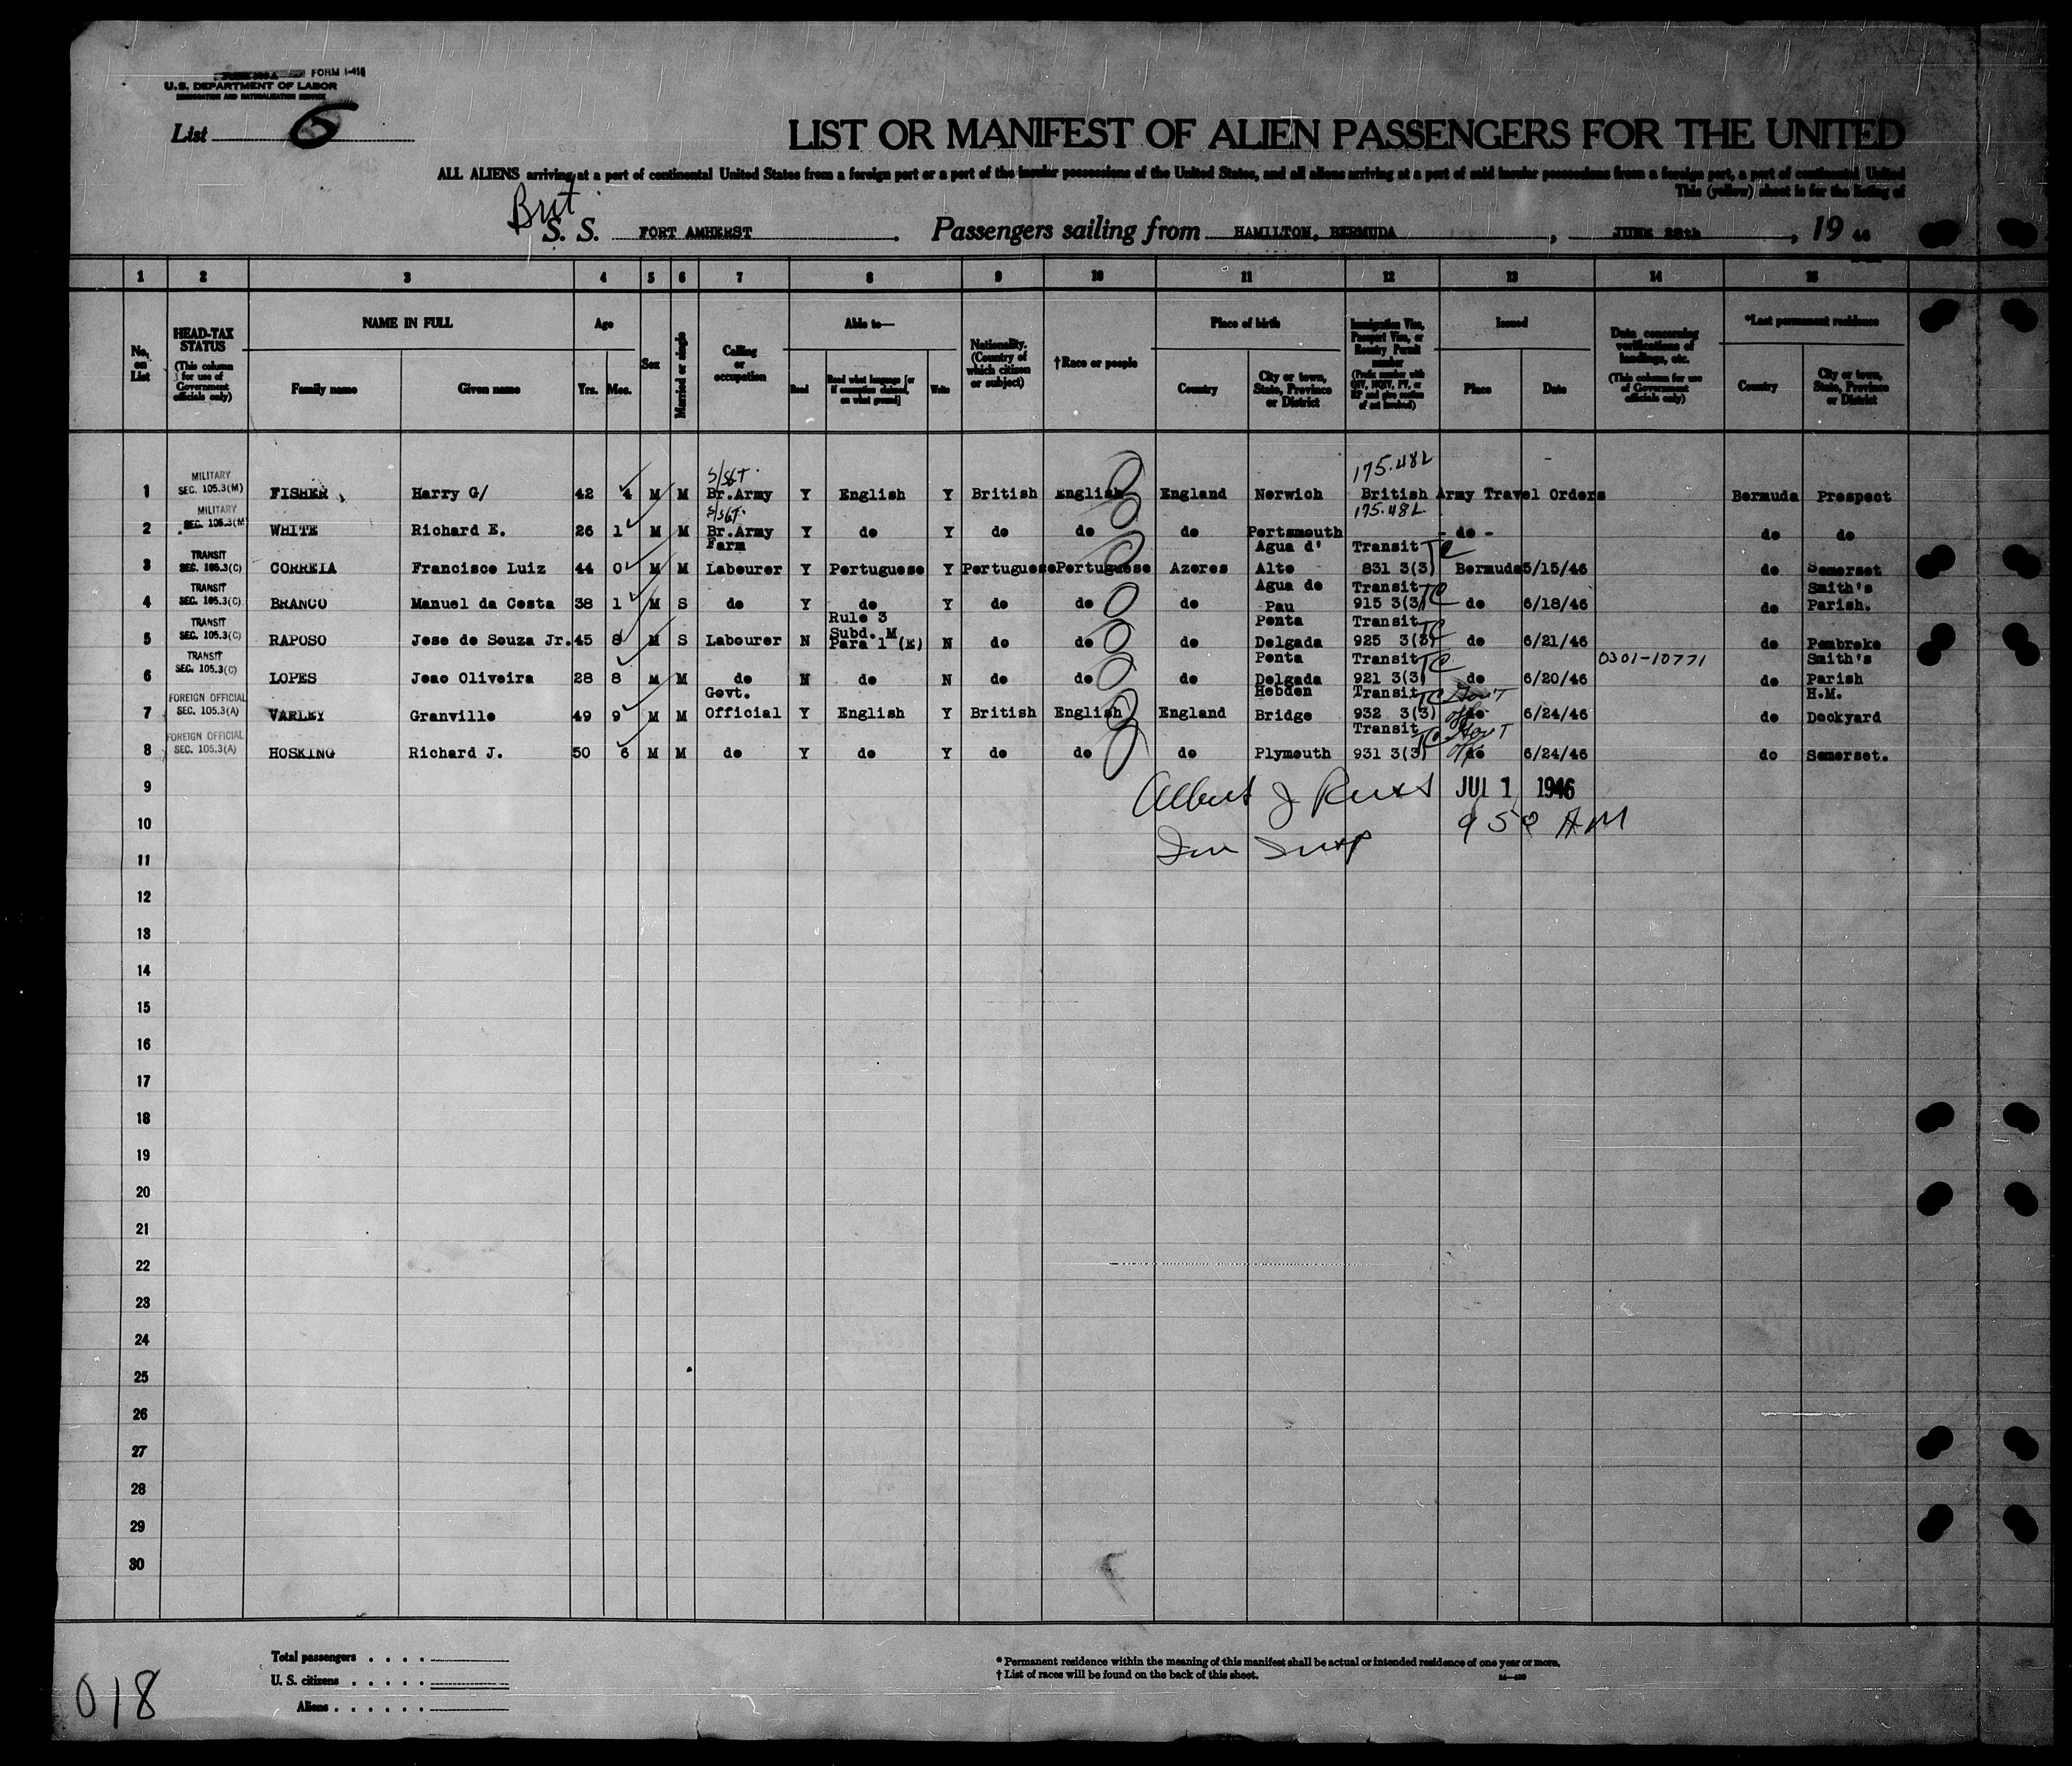 FORM I-418
U.S. DEPARTMENT OF LABOR
IMMIGRATION AND NATURALIZATION SERVICE
List 6
LIST OR MANIFEST OF ALIEN PASSENGERS FOR THE UNITED
ALL ALIENS arriving at a port of continental United States from a foreign port or a port of the insular possessions of the United States, and all aliens arriving at a port of said insular possessions from a foreign port, a port of continental United
This (yellow) sheet is for the listing of
Brit
S. S. FORT AMHERST. Passengers sailing from HAMILTON, BERMUDA, JUNE 28th, 19 46
1 2 3 4 5 6 7 8 9 10 11 12 13 14 15
No. on List
HEAD-TAX STATUS (This column for use of Government officials only)
NAME IN FULL Family name Given name
Age Yrs. Mos.
Sex
Married or single
Calling or occupation
Able to— Read Read what language [or if exemption claimed, on what ground] Write
Nationality. (Country of which citizen or subject)
†Race or people
Place of birth Country City or town, State, Province or District
Immigration Visa, Passport Visa, or Reentry Permit number (Prefix number with QIV, NQIV, PV, or RP and give section of act involved)
Issued Place Date
Data concerning verifications of landings, etc. (This column for use of Government officials only)
*Last permanent residence Country City or town, State, Province or District
MILITARY S/SGT. 175.482
1 SEC. 105.3(M) FISHER Harry G/ 42 4 M M Br.Army Y English Y British English England Norwich British Army Travel Orders Bermuda Prospect
MILITARY S/SGT. 175.482
2 SEC. 105.3(M) WHITE Richard E. 26 1 M M Br.Army Y do Y do do do Portsmouth - do - do do
TRANSIT Farm Agua d' Transit TC
3 SEC. 105.3(C) CORREIA Francisco Luiz 44 0 M M Labourer Y Portuguese Y Portuguese Portuguese Azores Alto 831 3(3) Bermuda 5/15/46 do Somerset
TRANSIT Agua de Transit TC Smith's
4 SEC. 105.3(C) BRANCO Manuel da Costa 38 1 M S do Y do Y do do do Pau 915 3(3) do 6/18/46 do Parish.
TRANSIT Rule 3 Subd. M Ponta Transit TC
5 SEC. 105.3(C) RAPOSO Jose de Souza Jr. 45 8 M S Labourer N Para 1 (E) N do do do Delgada 925 3(3) do 6/21/46 do Pembroke
TRANSIT Ponta Transit TC 0301-10771 Smith's
6 SEC. 105.3(C) LOPES Joao Oliveira 28 8 M M do N do N do do do Delgada 921 3(3) do 6/20/46 do Parish
FOREIGN OFFICIAL Govt. Hebden Transit TC Gov't H.M.
7 SEC. 105.3(A) VARLEY Granville 49 9 M M Official Y English Y British English England Bridge 932 3(3) do off 6/24/46 do Dockyard
FOREIGN OFFICIAL Transit TC Gov't
8 SEC. 105.3(A) HOSKING Richard J. 50 6 M M do Y do Y do do do Plymouth 931 3(3) do off 6/24/46 do Somerset.
9 Albert J Russ JUL 1 1946
10 950 AM
11 Imm Insp
12
13
14
15
16
17
18
19
20
21
22
23
24
25
26
27
28
29
30
Total passengers . . . .
U. S. citizens . . . . .
Aliens . . . . . .
* Permanent residence within the meaning of this manifest shall be actual or intended residence of one year or more.
† List of races will be found on the back of this sheet.
018